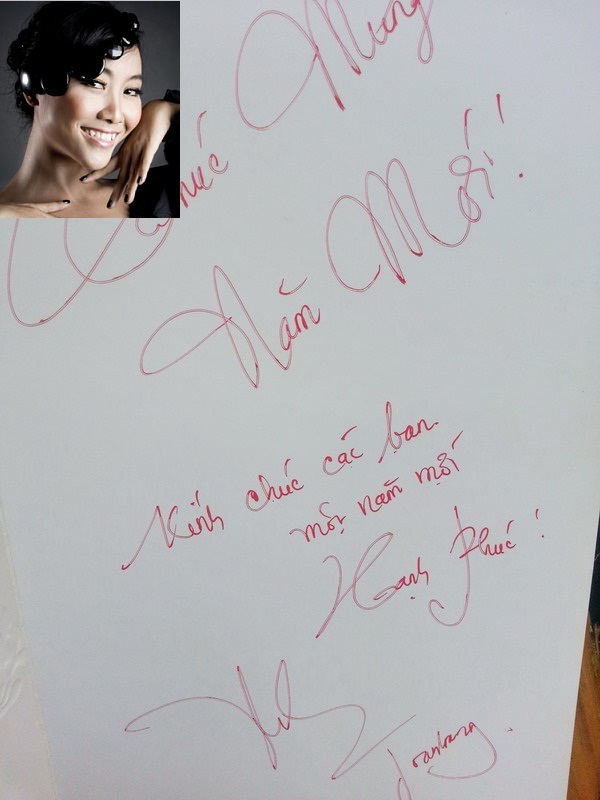 Chúc Mừng
Năm Mới!
Kính chúc các bạn
một năm mới
Hạnh Phúc!